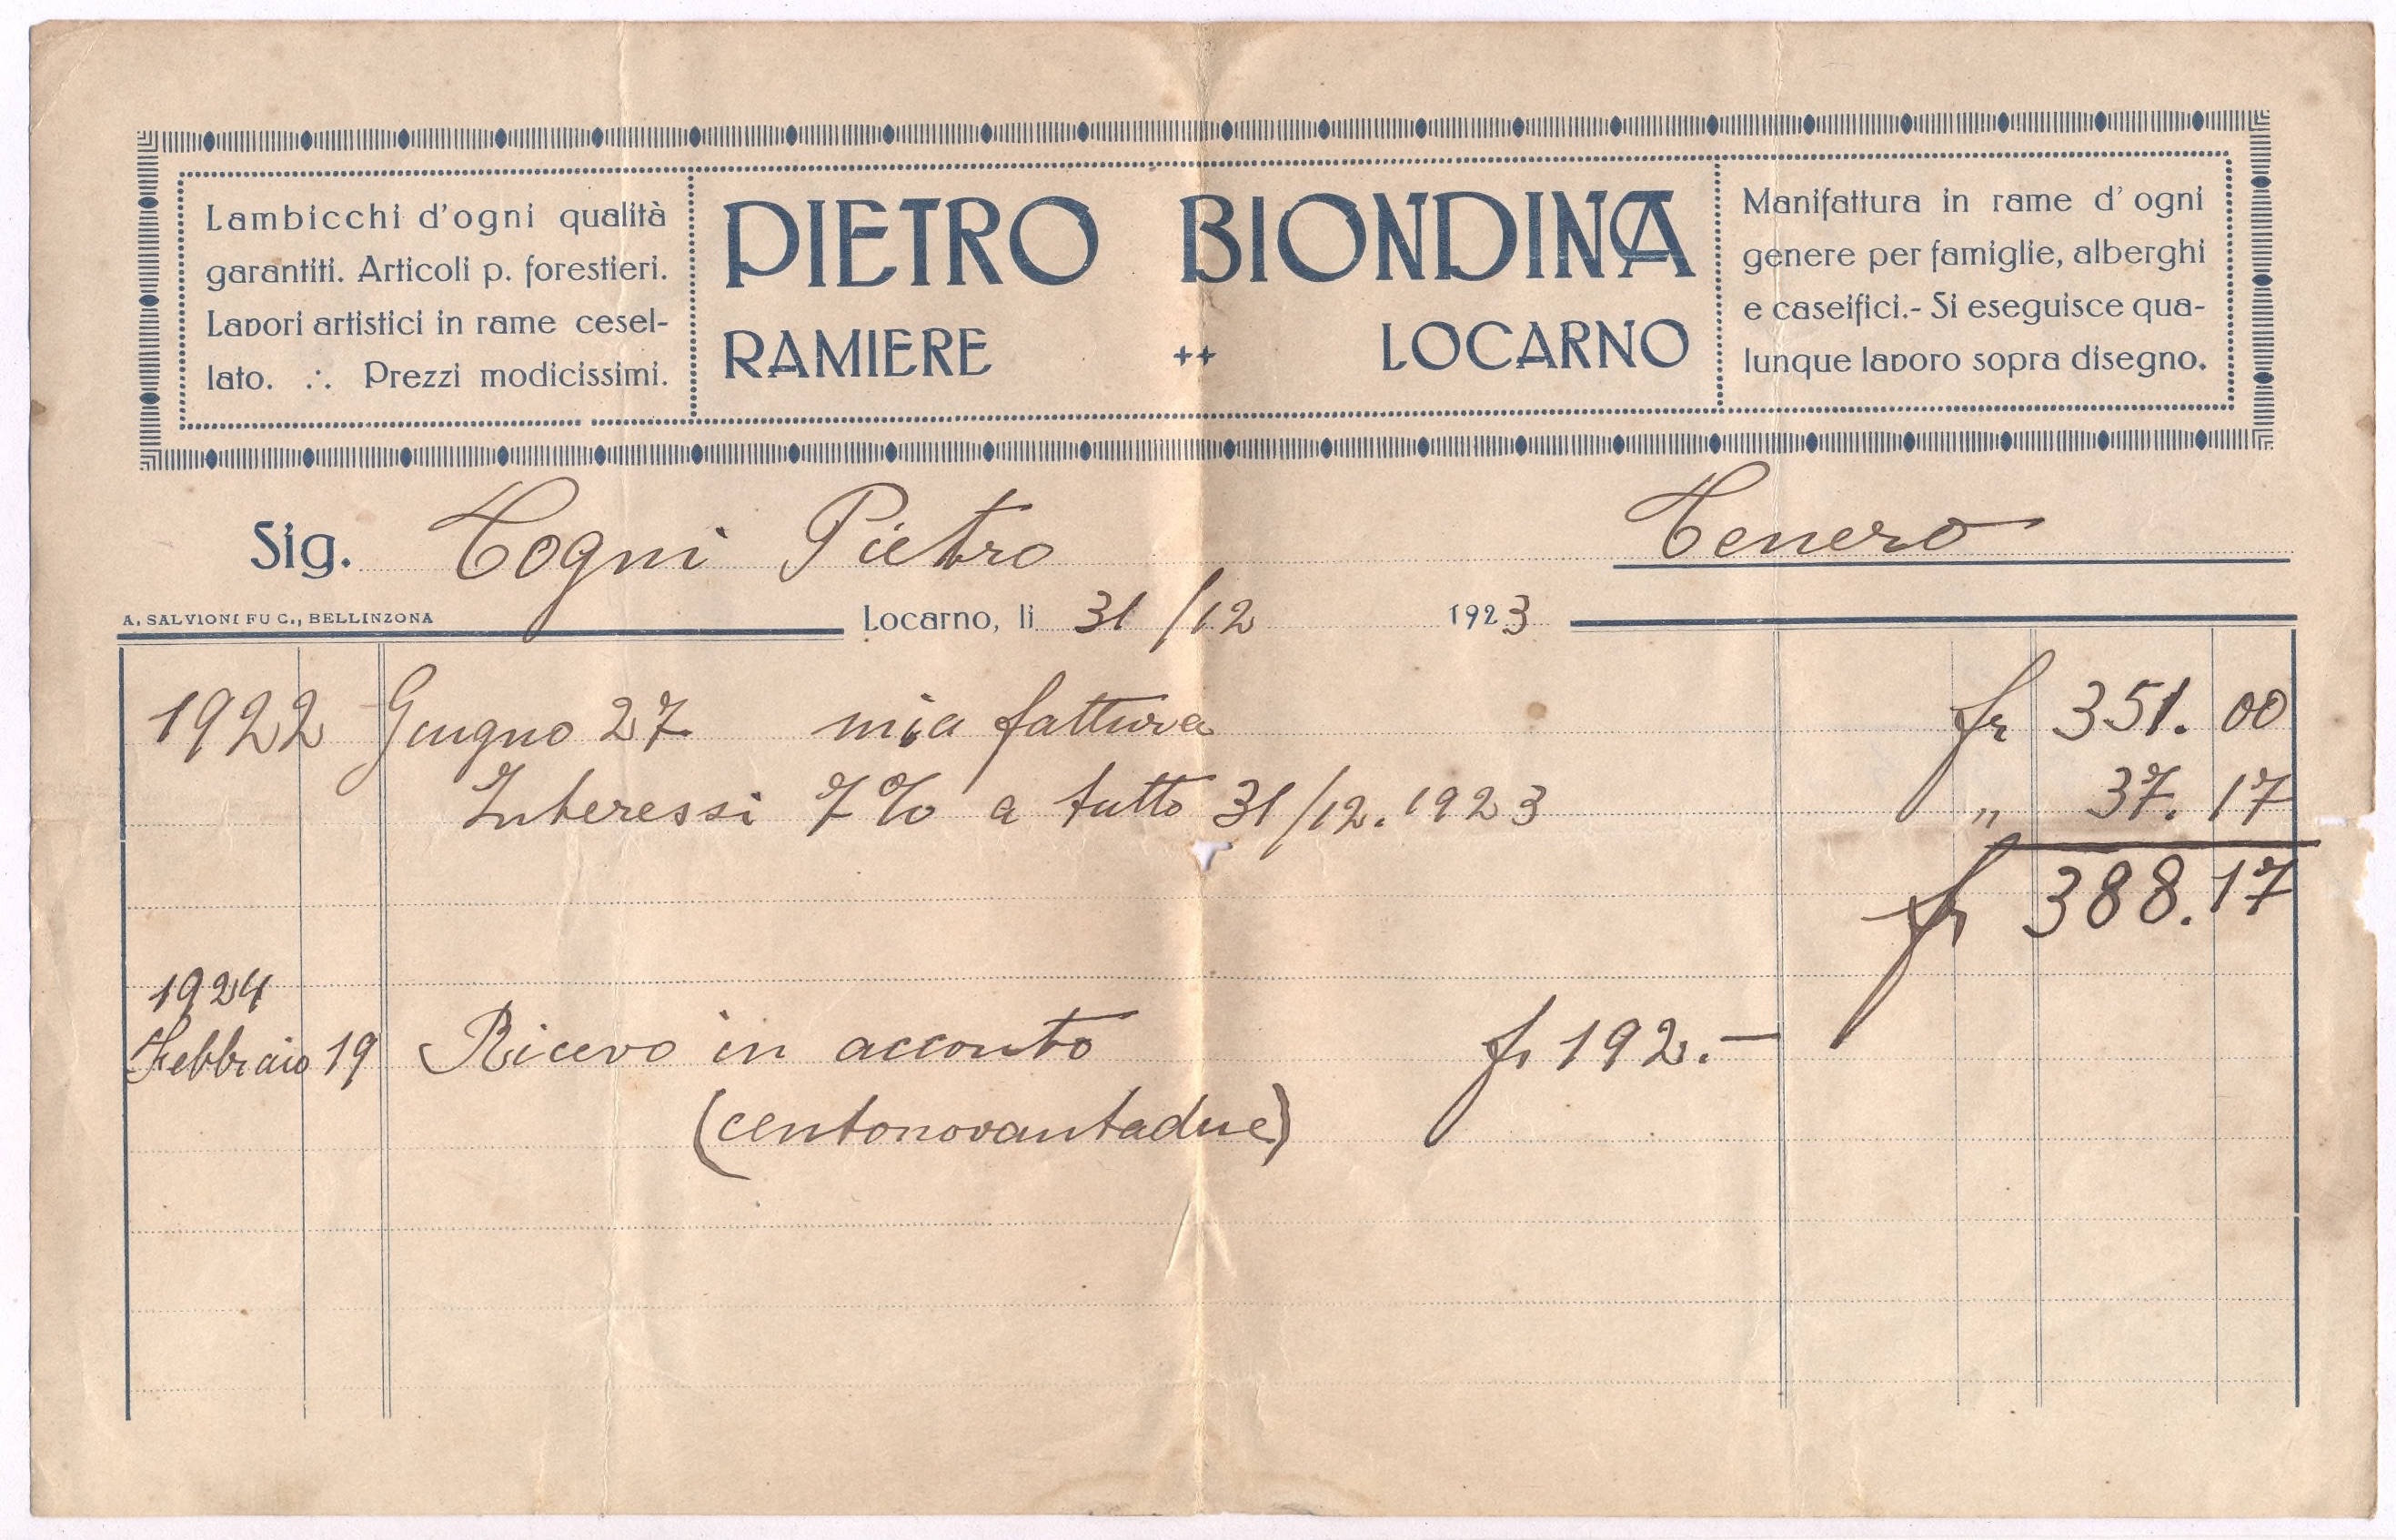 Lambicchi d'ogni qualità
garantiti. Articoli p. forestieri.
Lavori artistici in rame cesel-
lato. ∴ Prezzi modicissimi.
PIETRO BIONDINA
RAMIERE ++ LOCARNO
Manifattura in rame d'ogni
genere per famiglie, alberghi
e caseifici.- Si eseguisce qua-
lunque lavoro sopra disegno.
Sig. Togni Pietro Tenero
A. SALVIONI FU C., BELLINZONA
Locarno, li 31/12 1923
1922 Giugno 27 mia fattura fr 351.00
Interessi 7% a tutto 31/12.1923 " 37.17
fr 388.17
1924
Febbraio 19 Ricevo in acconto fr 192.-
(centonovantadue)